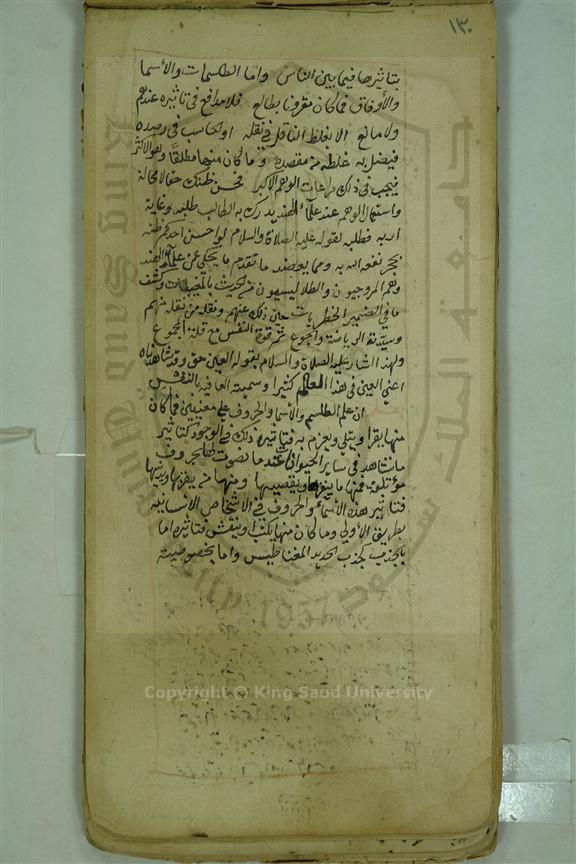 ١٣٠
بتاثيرها فيما بين الناس واما الطلسمات والأسما
والأوفاق فما كان مقرونا بطالع فلا مدافع في تاثيره عندهم
ولا مانع الا بغلط الناقل في نقله او الحاسب في رصده
فيضل به غلطه من مقصده وما كان منها مطلقا وهو الاكثر
فيجب في ذلك مراعات الوهم الاكبر فحسن ظنك حقا لا محالة
واستعمال الوهم عند علمآ الهند يدرك به الطالب طلبه وغاية
اربه فطلبه لقوله عليه الصلاة والسلام لو احسن احدكم ظنه
بحجر نفعه الله به ومما يعضد ما تقدم ما يحكى عن علمآ الهند
وهم المروحيون والطلا من الحديث بالمغيبات وكشف
ما في الضمير الخطريات حين ذلك عنهم ونقله من نقله منهم
الرياضة والجوع ثم قوة النفس مع قلة الهجوع
ولهذا اشار عليه الصلاة والسلام بقوله العين حق وقد شاهدناه
اعني العين في هذا المعلم كثيرا وسميته العافية النفس
ان علم الطلسم والأسما والحروف على معنيين فما كان
منها يقرا ويتلى ويعزم به فتاثيره ذلك في الوجود كتاثير
ما نشاهد في ساير الحيوانات عند ما تصوت لها بحروف
مؤتلفة فمنها ما ينفرها ويقصيها ومنها من يقربها ويدنيها
فتاثير هذه الأسمآء والحروف في الاشخاص الانسانيه
بطريق الأولي وما كان منها يكتب او ينقش فتاثيره اما
بالجذب كجذب الحديد المغناطيس واما بخصوصيته
Copyright © King Saud University